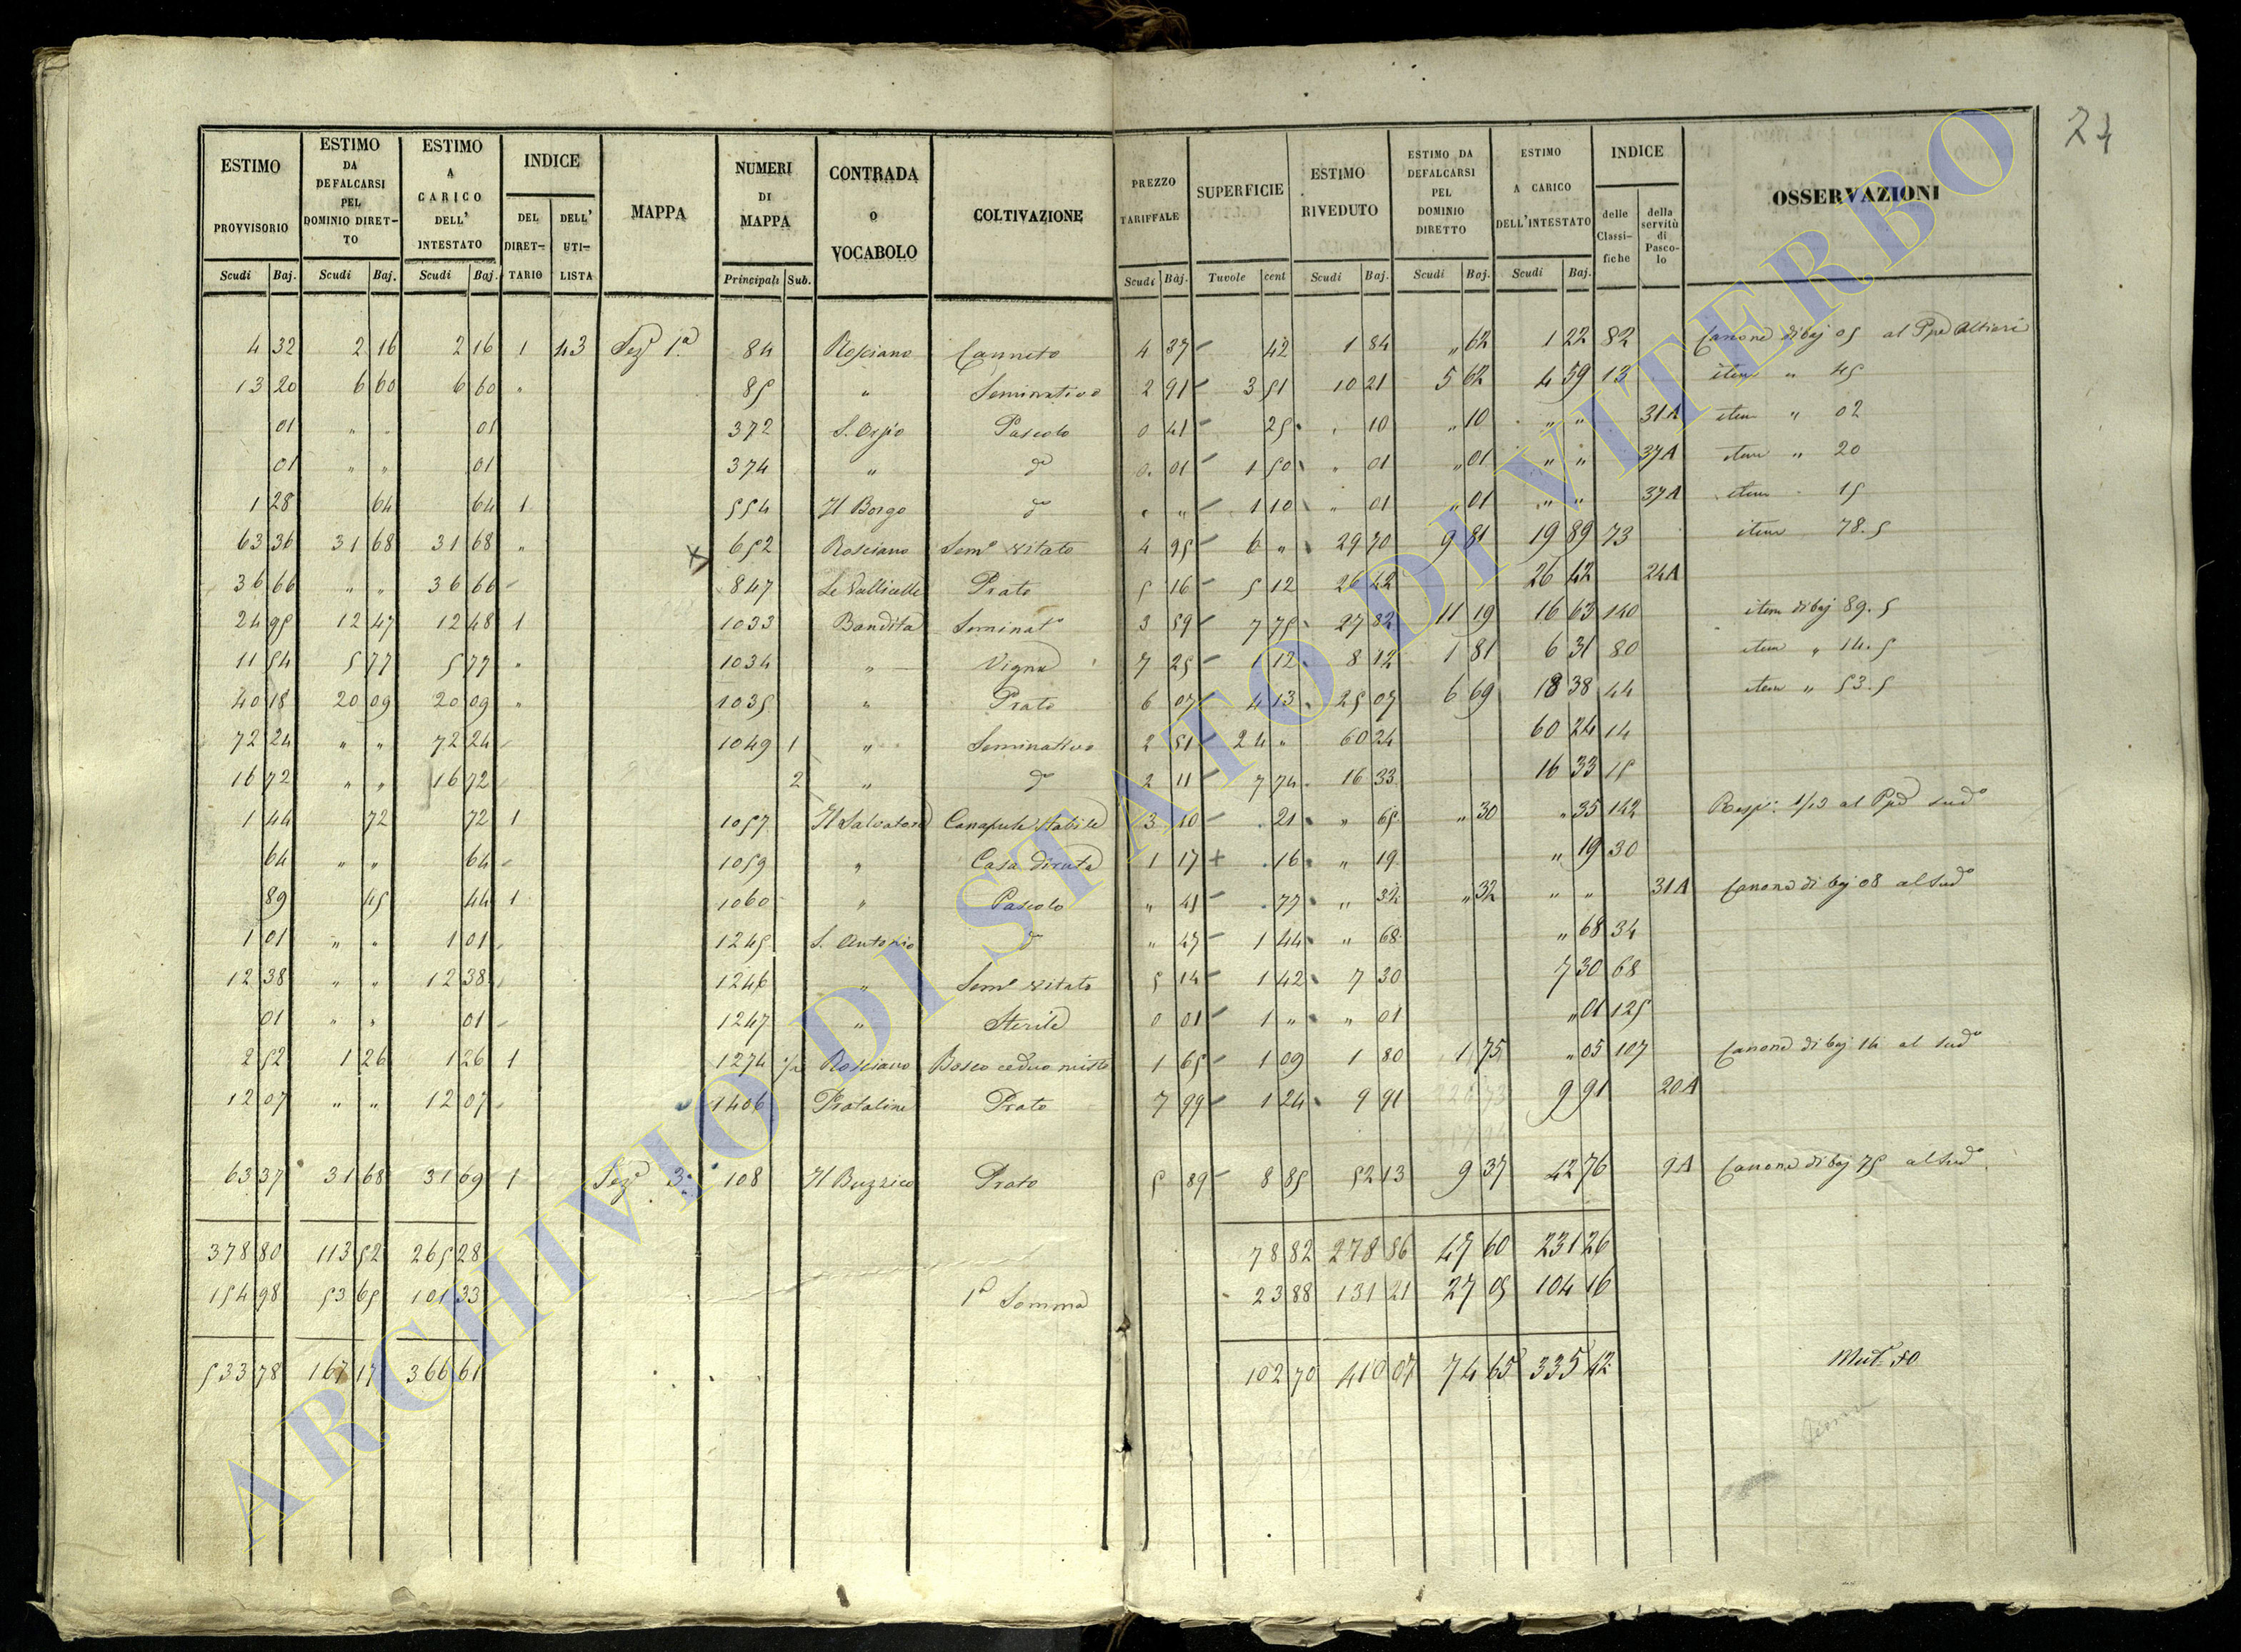 24
ESTIMO PROVVISORIO | ESTIMO DA DEFALCARSI PEL DOMINIO DIRETTO | ESTIMO A CARICO DELL' INTESTATO | INDICE DEL DIRETTARIO | DELL' UTILISTA | MAPPA | NUMERI DI MAPPA | CONTRADA O VOCABOLO | COLTIVAZIONE | PREZZO TARIFFALE | SUPERFICIE | ESTIMO RIVEDUTO | ESTIMO DA DEFALCARSI PEL DOMINIO DIRETTO | ESTIMO A CARICO DELL'INTESTATO | INDICE delle Classifiche | della servitù di Pascolo | OSSERVAZIONI
Scudi Baj. | Scudi Baj. | Scudi Baj. | Principali Sub. | Scudi Baj. | Tavole cent | Scudi Baj. | Scudi Baj. | Scudi Baj.
4 32 | 2 16 | 2 16 | 1 | 43 | Sez.e 1.a | 84 | Rosciano | Canneto | 4 37 | 42 | 1 84 | " 62 | 1 22 | 82 | Canone di baj 05 al Ppe Altieri
13 20 | 6 60 | 6 60 | " | 85 | " | Seminativo | 2 91 | 3 51 | 10 21 | 5 62 | 4 59 | 13 | item " 45
01 | " " | 01 | 372 | Pascolo | 0 41 | 25 | " 10 | " 10 | " " | 31A | item " 02
01 | " " | 01 | 374 | " | do | 0 01 | 1 50 | " 01 | " 01 | " " | 37A | item " 20
1 28 | 64 | 64 | 1 | 554 | Il Borgo | do | " " | 1 10 | " 01 | " 01 | " " | 37A | item 15
63 36 | 31 68 | 31 68 | " | 652 | Rosciano | Sem.o vitato | 4 95 | 6 " | 29 70 | 9 81 | 19 89 | 73 | item 78.5
36 66 | " " | 36 66 | 847 | Le Vallicelle | Prato | 5 16 | 5 12 | 26 42 | 26 42 | 24A
24 95 | 12 47 | 12 48 | 1 | 1033 | Bandita | Seminat.o | 3 59 | 7 75 | 27 82 | 11 19 | 16 63 | 140 | item di baj 89.5
11 54 | 5 77 | 5 77 | " | 1034 | " | Vigna | 7 25 | 1 12 | 8 12 | 1 81 | 6 31 | 80 | item " 14.5
40 18 | 20 09 | 20 09 | " | 1035 | " | Prato | 6 07 | 4 13 | 25 07 | 6 69 | 18 38 | 44 | item " 53.5
72 24 | " " | 72 24 | 1049 1 | " | Seminativo | 2 51 | 24 " | 60 24 | 60 24 | 14
16 72 | " " | 16 72 | 2 | " | do | 2 11 | 7 74 | 16 33 | 16 33 | 15
1 44 | 72 | 72 | 1 | 1057 | Il Salvatore | Canapule stabile | 3 10 | 21 | " 65 | " 30 | " 35 | 142 | Risp. 1/13 al Ppe sud.o
64 | " " | 64 | 1059 | " | Casa diruta | 1 17 | 16 | " 19 | " 19 | 30
89 | 45 | 44 | 1 | 1060 | " | Pascolo | " 41 | 77 | " 32 | " 32 | " " | 31A | Canone di baj 08 al sud.o
1 01 | " " | 1 01 | 1245 | S. Antonio | do | " 47 | 1 44 | " 68 | " 68 | 34
12 38 | " " | 12 38 | 1246 | " | Sem.o vitato | 5 14 | 1 42 | 7 30 | 7 30 | 68
01 | " " | 01 | 1247 | " | Sterile | 0 01 | 1 " | " 01 | " 01 | 125
2 52 | 1 26 | 1 26 | 1 | 1274 | Rosciano | Bosco ceduo misto | 1 65 | 1 09 | 1 80 | 1 75 | " 05 | 107 | Canone di baj 14 al sud.o
12 07 | " " | 12 07 | 1406 | Prataline | Prato | 7 99 | 1 24 | 9 91 | 9 91 | 20A
63 37 | 31 68 | 31 69 | 1 | Sez.e 3.a | 108 | Prato | 5 89 | 8 85 | 52 13 | 9 37 | 42 76 | 9A | Canone di baj 75 al sud.o
378 80 | 113 52 | 265 28 | 78 82 | 278 86 | 47 60 | 231 26
154 98 | 53 65 | 101 33 | 1a Somma | 23 88 | 131 21 | 27 05 | 104 16
533 78 | 167 17 | 366 61 | 102 70 | 410 07 | 74 65 | 335 42
ARCHIVIO DI STATO DI VITERBO